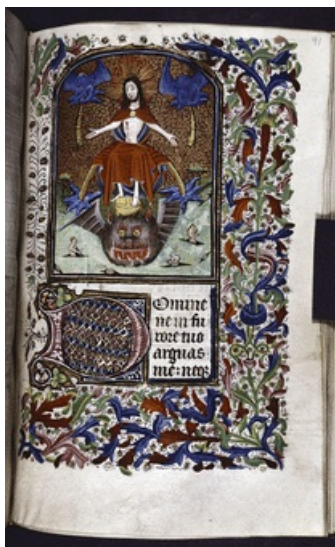 Omine
ne in fu
rore tuo
arguas
me: neqz
91